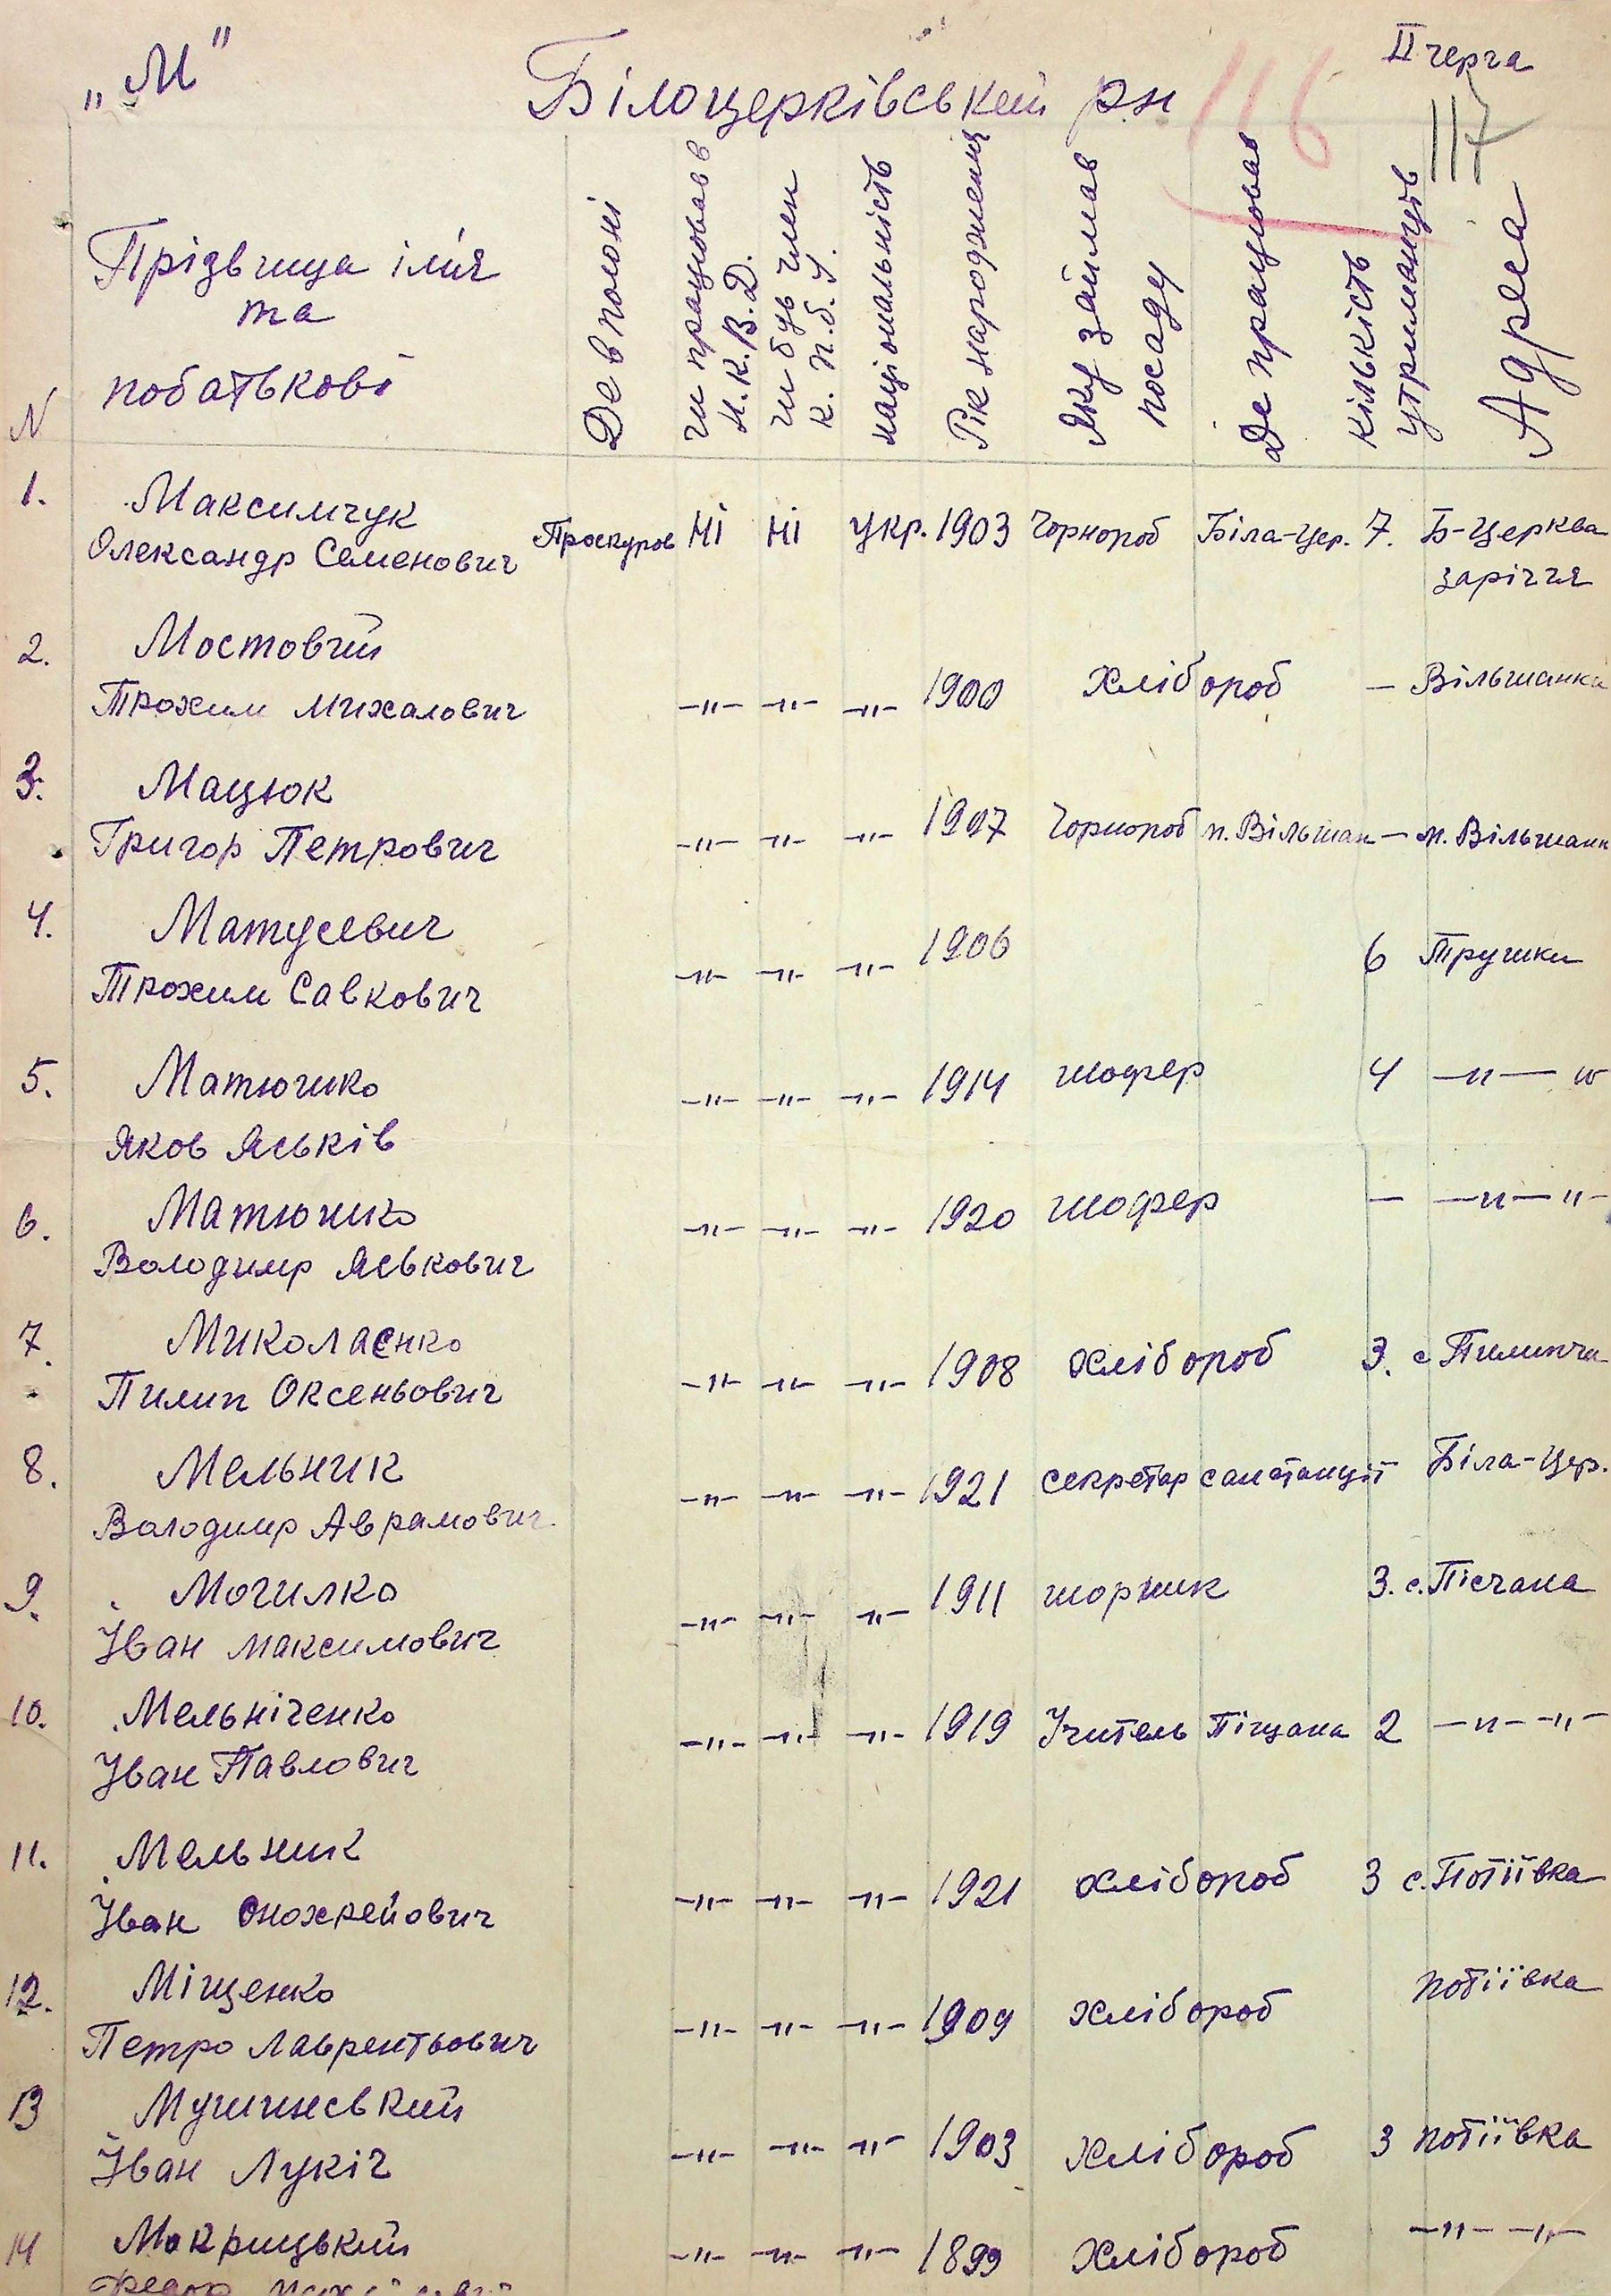 „М”
ІІ черга
Білоцерківський р-н
116
117
N
Прізвища ім'я
та
побатькові
Де в полоні
чи працював в
Н.К.В.Д.
чи був член
К.П.б.У.
національність
Рік народження
Яку займав
посаду
Де працював
кількість
утриманців
Адреса
1. Максимчук
Олександр Семенович Проскуров Ні Ні Укр. 1903 Чорнороб Біла-Цер. 7. Б-Церква
заріччя
2. Мостовий
Трохим Михалович —"— —"— —"— 1900 Хлібороб — Вільшанка
3. Мацюк
Григор Петрович —"— —"— —"— 1907 Чорнороб п. Вільшан — п. Вільшанк
4. Матусевич
Трохим Савкович —"— —"— —"— 1906 6 Трушки
5. Матюшко
Яков Яськів —"— —"— —"— 1914 шофер 4 —"— "
6. Матюшко
Володимир Яськович —"— —"— —"— 1920 шофер — —"— "—
7. Миколаєнко
Пилип Оксеньович —"— —"— —"— 1908 хлібороб 3. с Пилипча
8. Мельник
Володимир Аврамович —"— —"— —"— 1921 секретар санстанції Біла-Цер.
9. Могилко
Іван Максимович —"— —"— —"— 1911 шорник 3. с. Пісчана
10. Мельніченко
Іван Павлович —"— —"— —"— 1919 Учитель Піщана 2 —"— —"—
11. Мельник
Іван Онохрейович —"— —"— —"— 1921 хлібороб 3 с. Потіївка
12. Міщенко
Петро Лаврентьович —"— —"— —"— 1909 хлібороб потіївка
13 Мушинський
Іван Лукіч —"— —"— —"— 1903 хлібороб 3 потіївка
14 Мокрицький —"— —"— —"— 1899 хлібороб —"— —"—
Федор